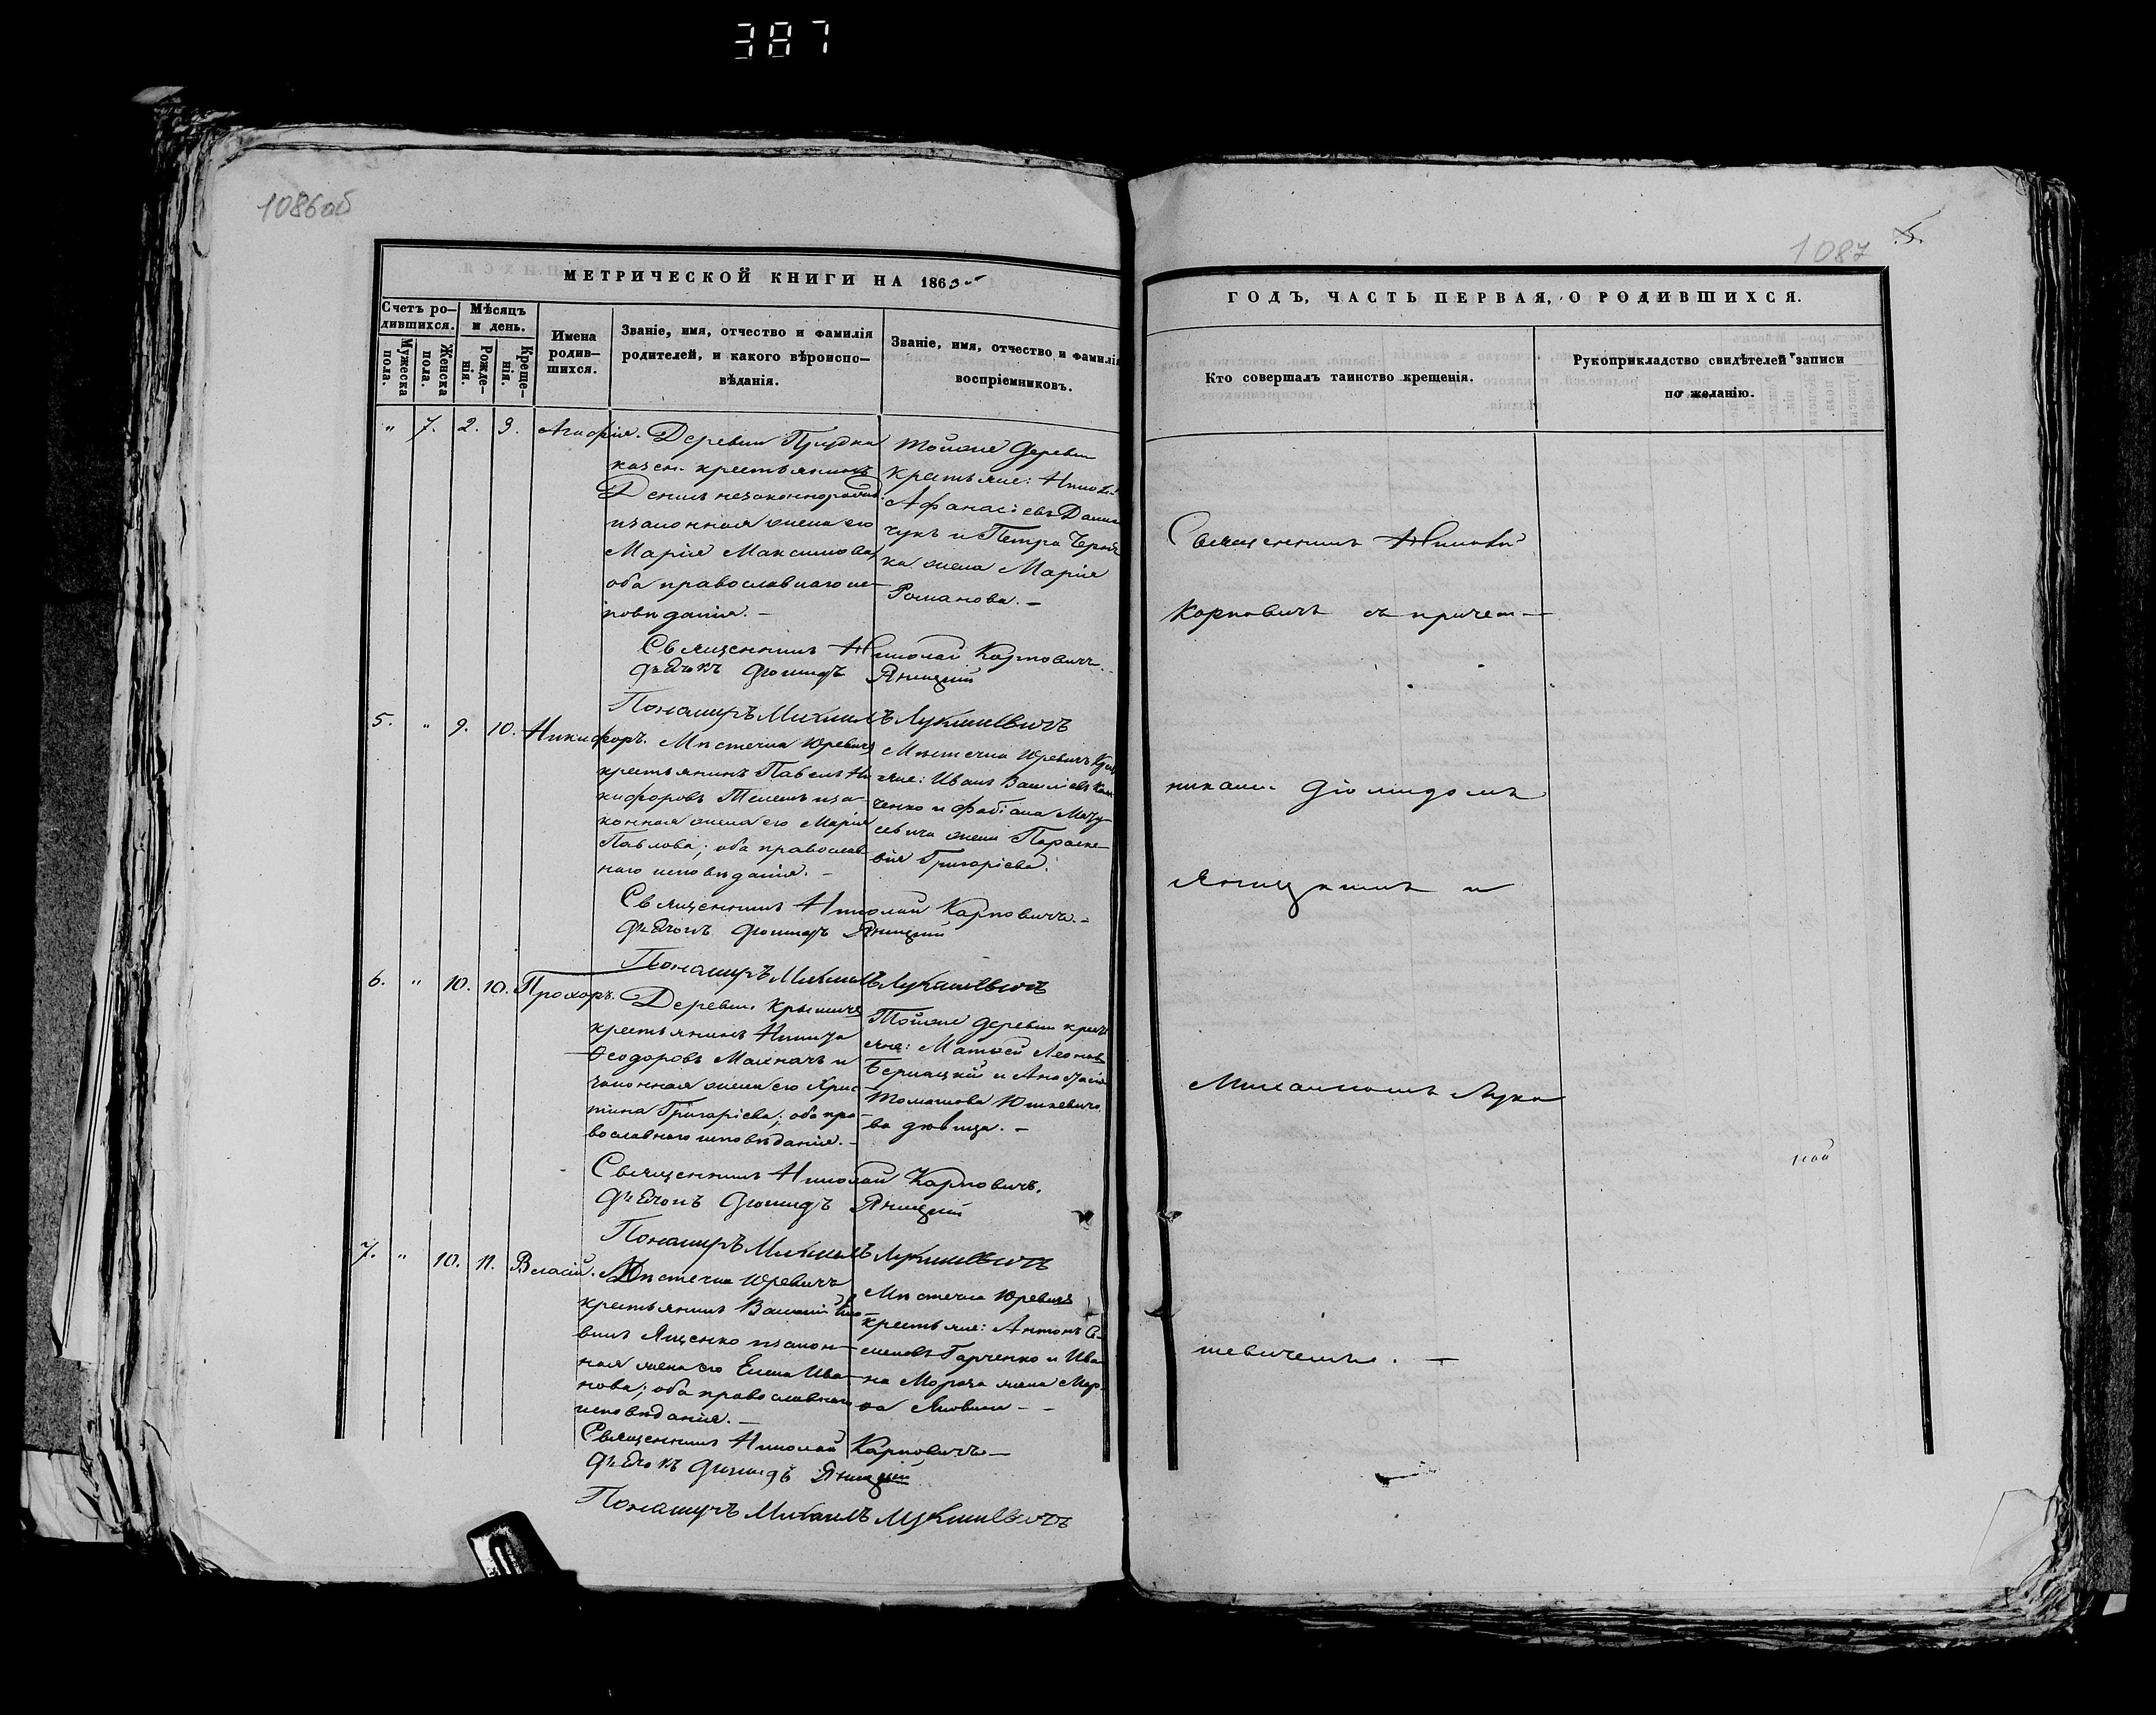 387
1086об
МЕТРИЧЕСКОЙ КНИГИ НА 1865
Счетъ ро-
дившихся.
Мужеска пола.
Женска пола.
Мѣсяцъ
и день.
Рожде-
нія.
Креще-
нія.
Имена
родив-
шихся.
Званіе, имя, отчество и фамилія
родителей, и какого вѣроиспо-
вѣданія.
Званіе, имя, отчество и фамилія
воспріемниковъ.
" 7. 2. 3. Агафія. Деревни
казен. крестьянинъ
Денисъ незаконнорожд.
изаконная жена его
Марія Максимова,
оба православнаго ис-
повѣданія. –
Тойже деревни
крестьяне: Николай
Афанасіевъ
чукъ и Петра
ка жена Марія
Романова. –
Священникъ Николай Карповичъ.
Дьячокъ Діомидъ Яницкій
Пономарь Михаилъ Лукашевичъ
5. " 9. 10. Никифоръ. Мѣстечка Юревичъ
крестьянинъ Павелъ Ни-
кифоровъ иза-
конная жена его Марія
Павлова; оба православ-
наго исповѣданія. –
Мѣстечка Юревичъ
яне: Иванъ Василіевъ
ченко и Фабіана Мацу-
севича жена Параске-
вія Григоріева.
Священникъ Николай Карповичъ. –
Дьячокъ Діомидъ Яницкій
Пономарь Михаилъ Лукашевичъ
6. " 10. 10. Прохоръ. Деревни Крышичъ
крестьянинъ Никита
Ѳеодоровъ Махначъ и
законная жена его Хрис-
тина Григоріева; оба пра-
вославнаго исповѣданія. –
Тойже деревни кресть
яне: Матѳей Леоновъ
и Анастасія
Томашова Юшкевичо-
ва дѣвица. –
Священникъ Николай Карповичъ.
Дьячокъ Діомидъ Яницкій
Пономарь Михаилъ Лукашевичъ
7. " 10. 11. Власій. Мѣстечка Юревичъ
крестьянинъ Василій
вичъ Ященко изакон-
ная жена его Елена Ива-
нова; оба православнаго
исповѣданія. –
Мѣстечка Юревичъ
крестьяне: Антонъ Се-
меновъ Гарченко и Ива-
на Мороза жена Мар-
Священникъ Николай Карповичъ –
Дьячокъ Діомидъ Яницкій
Пономарь Михаилъ Лукашевичъ
1087
5.
ГОДЪ, ЧАСТЬ ПЕРВАЯ, О РОДИВШИХСЯ.
Кто совершалъ таинство крещенія.
Рукоприкладство свидѣтелей записи
по желанію.
Священникъ Николай
Карповичъ съ причет-
никами Діомидомъ
Яницкимъ и
Михаиломъ Лука
шевичемъ. –